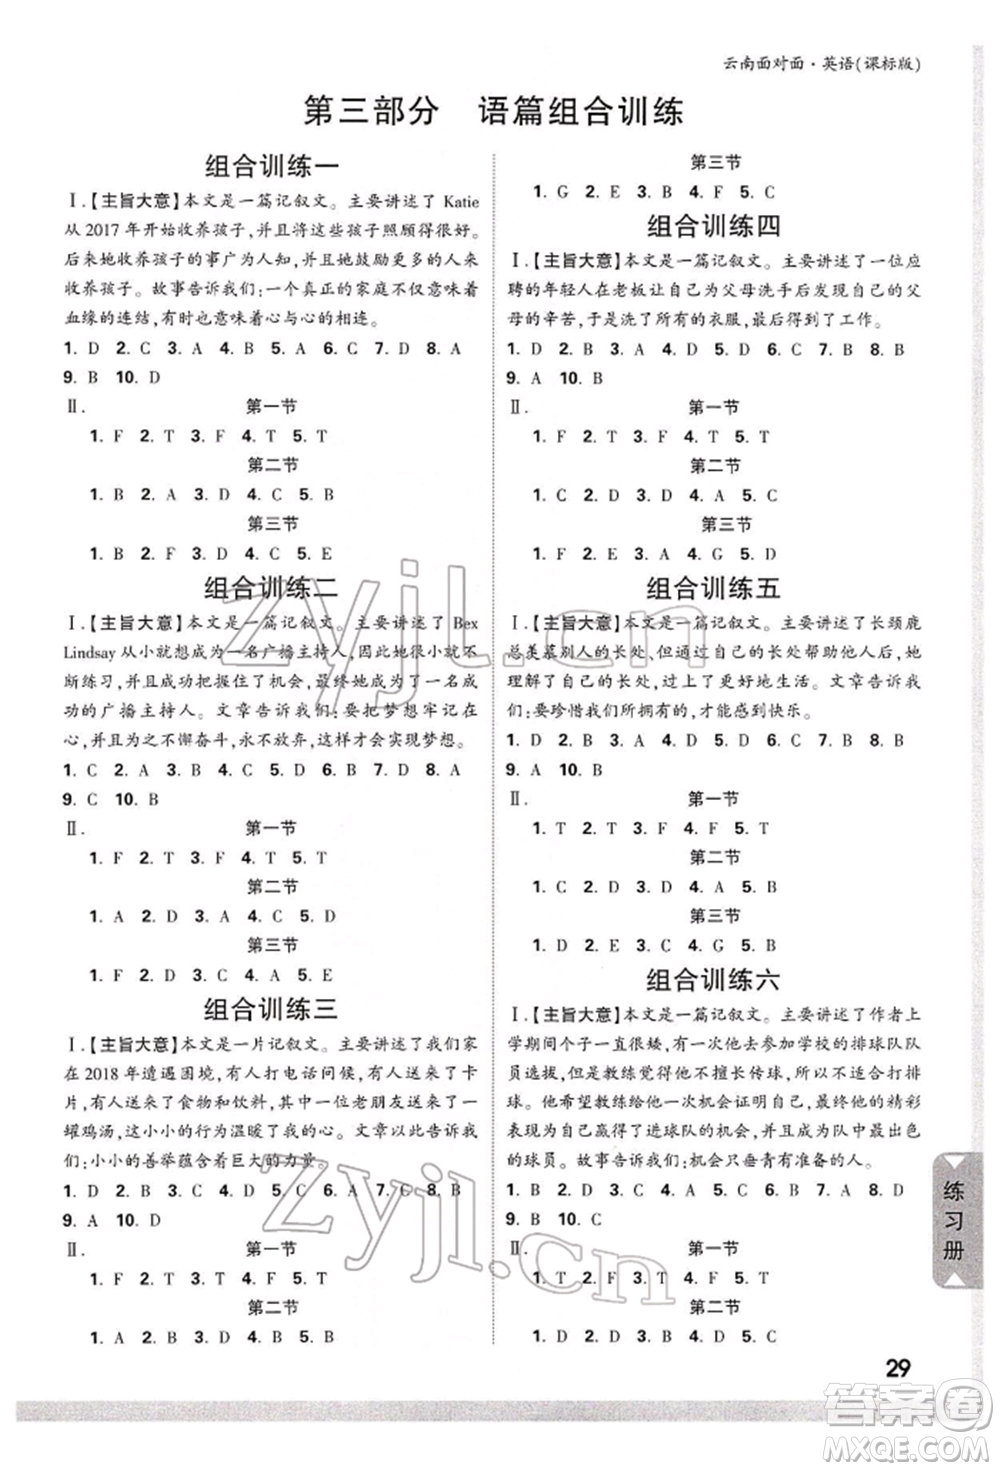 云南面对面·英语(课标版)
第三部分 语篇组合训练
组合训练一
Ⅰ.【主旨大意】本文是一篇记叙文。主要讲述了 Katie
从 2017 年开始收养孩子,并且将这些孩子照顾得很好。
后来她收养孩子的事广为人知,并且她鼓励更多的人来
收养孩子。故事告诉我们:一个真正的家庭不仅意味着
血缘的连结,有时也意味着心与心的相连。
1. D 2. C 3. C 4. A 5. A 6. C 7. D 8. A
9. B 10. D
Ⅱ. 第一节
1. F 2. T 3. F 4. T 5. T
第二节
1. B 2. A 3. D 4. C 5. D
第三节
1. B 2. F 3. D 4. G 5. E
组合训练二
Ⅰ.【主旨大意】本文是一篇记叙文。主要讲述了 Bex
Lindsay 从小就想成为一名广播主持人,因此她就不
断练习,并且获得了机会,最终她成为了一名成
功的广播主持人。文章告诉我们:要把梦想牢记在
心,并且为之不懈奋斗,永不放弃,这样才会实现梦想。
1. C 2. A 3. D 4. B 5. B 6. D 7. D 8. A
9. C 10. B
Ⅱ. 第一节
1. F 2. T 3. F 4. T 5. T
第二节
1. A 2. D 3. A 4. C 5. D
第三节
1. B 2. F 3. C 4. A 5. E
组合训练三
Ⅰ.【主旨大意】本文是一片记叙文。主要讲述了我们家
在 2018 年遭遇困境,有人打电话问候,有人送来了卡
片,有人送来了食物和饮料,其中一位老朋友送来了一
罐鸡汤,这小小的行为温暖了我的心。文章告诉我
们:小小的善举蕴含着巨大的力量。
1. D 2. D 3. C 4. B 5. B 6. A 7. C 8. B
9. A 10. D
Ⅱ. 第一节
1. F 2. T 3. T 4. F 5. T
第二节
1. A 2. B 3. A 4. D 5. C
第三节
1. G 2. E 3. B 4. F 5. C
组合训练四
Ⅰ.【主旨大意】本文是一篇记叙文。主要讲述了一位应
聘的年轻人在老板让自己为父母洗手后发现自己的父
母的辛苦,于是洗了所有的衣服,最后得到了工作。
1. D 2. B 3. C 4. A 5. D 6. C 7. B 8. C
9. A 10. B
Ⅱ. 第一节
1. F 2. F 3. T 4. F 5. T
第二节
1. C 2. B 3. D 4. A 5. C
第三节
1. F 2. E 3. A 4. G 5. D
组合训练五
Ⅰ.【主旨大意】本文是一篇记叙文。主要讲述了长颈鹿
总羡慕别人的长处、用自己的长处帮助他人后,她
理解了自己的长处,达到了更好地生活。文章告诉我
们:要珍惜我们所拥有的,才能感到快乐。
1. D 2. D 3. C 4. A 5. D 6. D 7. B 8. C
9. A 10. B
Ⅱ. 第一节
1. T 2. T 3. F 4. F 5. T
第二节
1. C 2. D 3. D 4. A 5. B
第三节
1. D 2. E 3. C 4. G 5. B
组合训练六
Ⅰ.【主旨大意】本文是一篇记叙文。主要讲述了作者上
学期间一直很矮,有一次去参加学校的排球队队
员选拔,但是教练嫌他矮,不擅长传球,所以没打进排
球。他希望教练给他一次机会,并且之后以他的精彩
表现为自己赢得了进球队的机会,并成为队中最出色
的球员。故事告诉我们:机会只垂青有准备的人。
1. D 2. C 3. B 4. C 5. A 6. B 7. A 8. D
9. B 10. C
Ⅱ. 第一节
1. T 2. F 3. F 4. T 5. T
第二节
1. D 2. B 3. A 4. D 5. C
练习册
29
zyjl.cn
zyjl.cn
答案圈
MXQE.COM